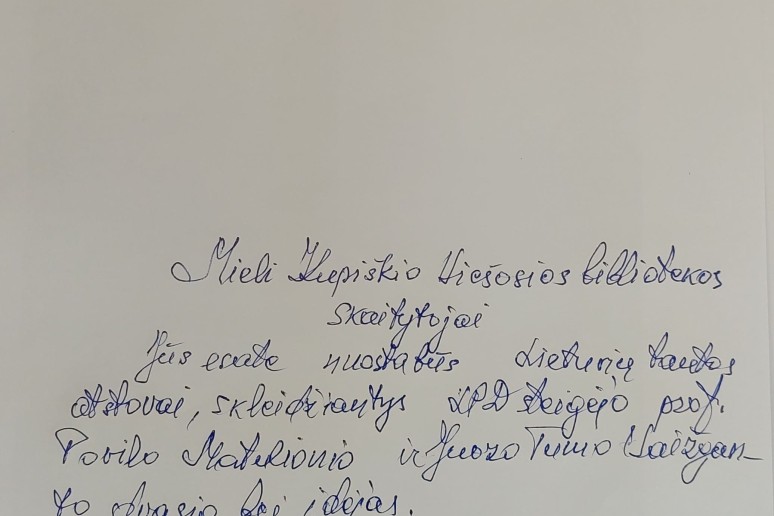 Mieli Kupiškio Viešosios bibliotekos
skaitytojai
Jūs esate nuostabūs Lietuvių tautos
atstovai, skleidžiantys XPD steigėjo prof.
Povilo Matulionio ir Juozo Tumo Vaižgan-
to dvasią bei idėjas.